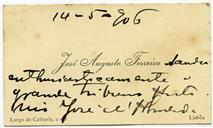 14-5-906
José Augusto Ferreira sauda
enthusiasticamente o
grande tribuno
José d'Almeida
Largo do Calhariz, Lisboa